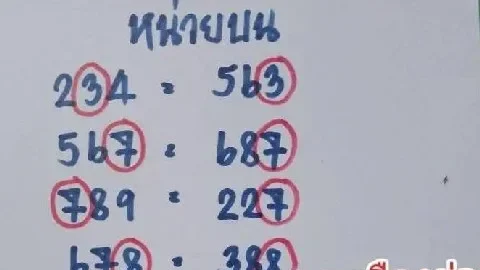 หน่ายบน
234 = 563
567 = 687
789 = 227
678 = 388